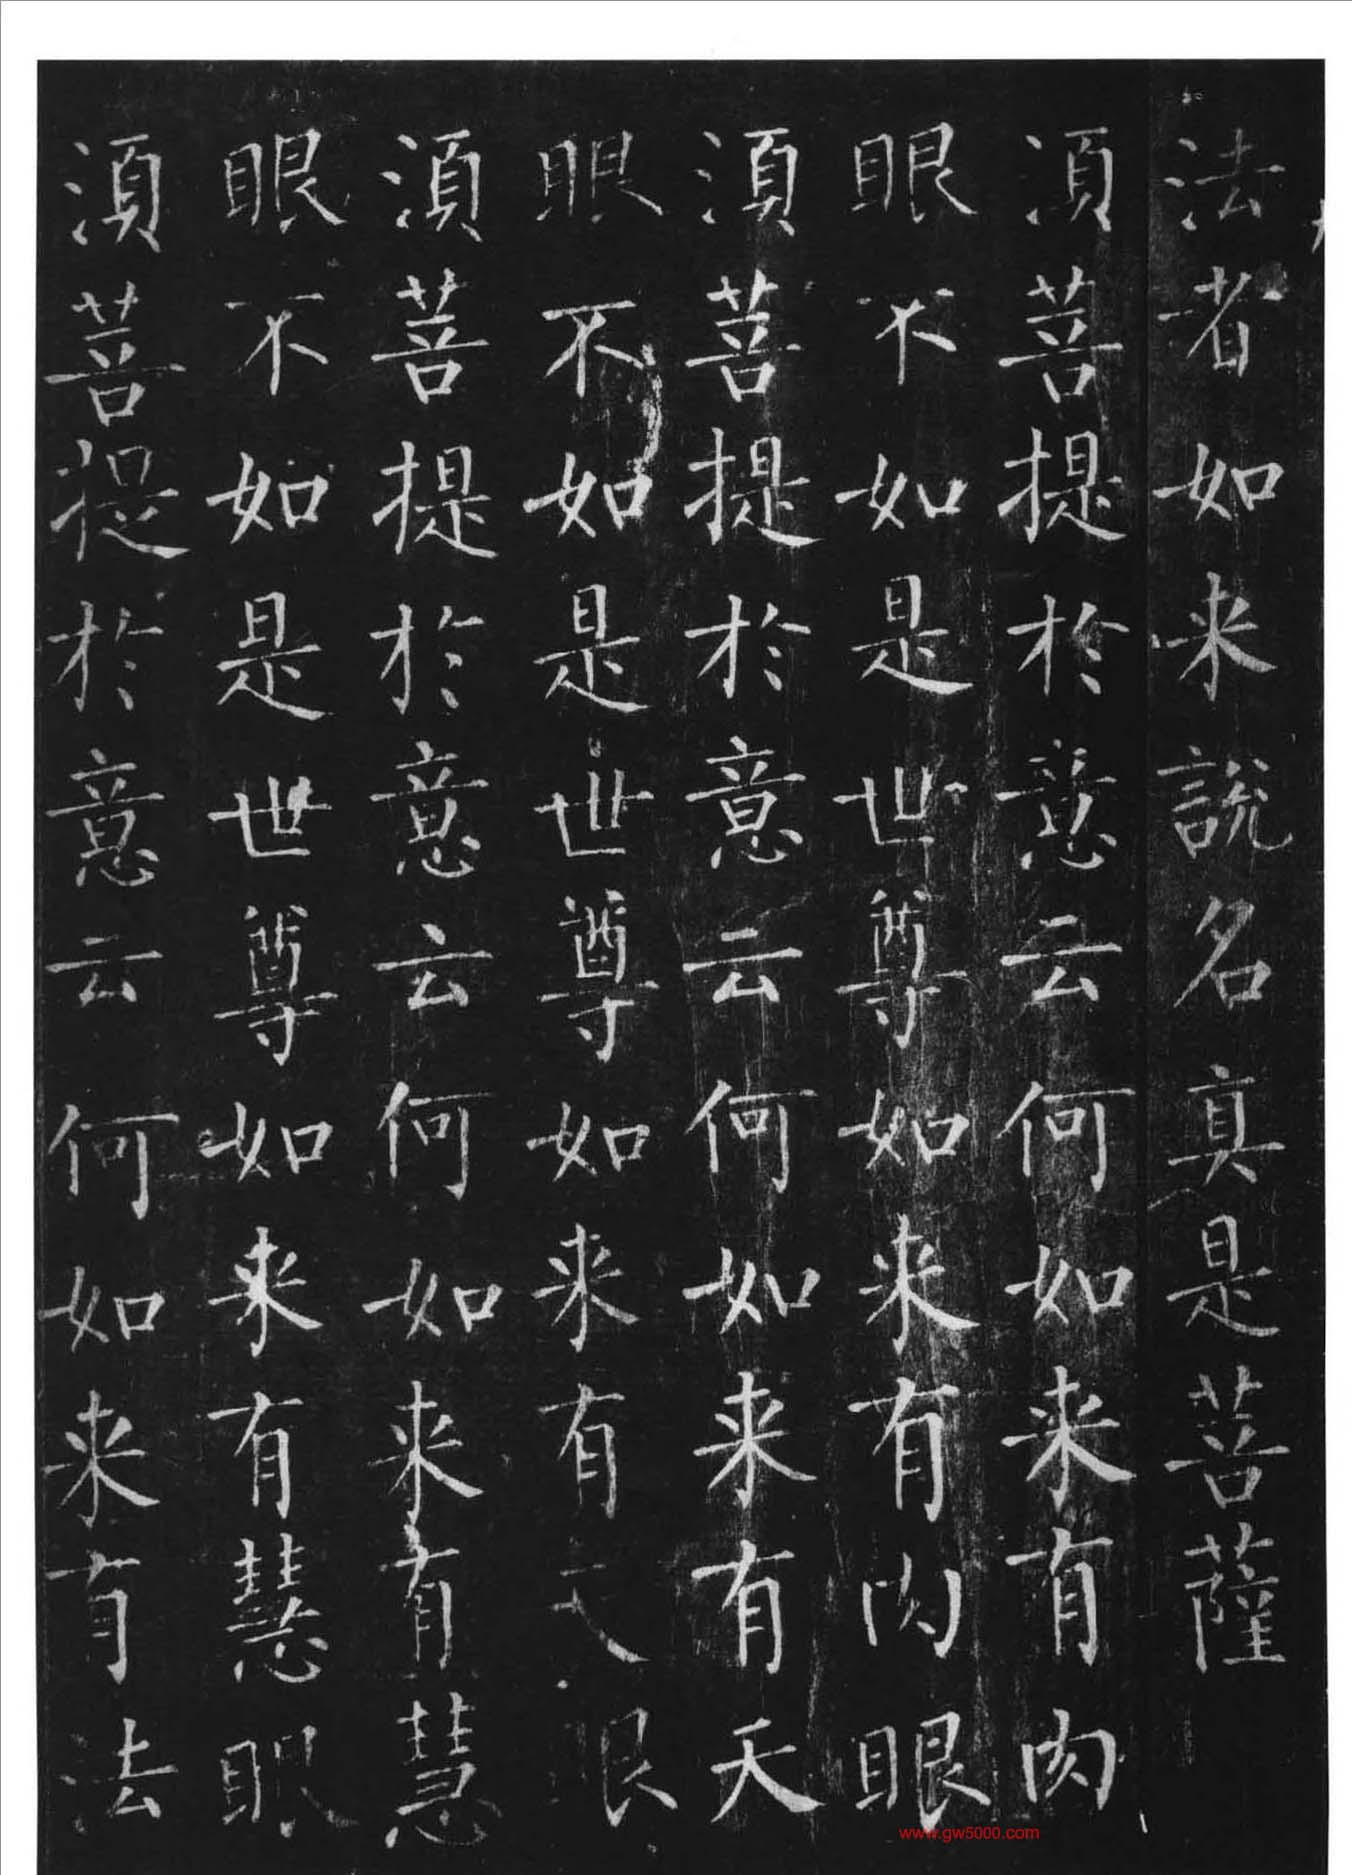 法者如来說名真是菩薩
湏菩提於意云何如来有肉
眼不如是世尊如来有肉眼
湏菩提於意云何如来有天
眼不如是世尊如来有天眼
湏菩提於意云何如来有慧
眼不如是世尊如来有慧眼
湏菩提於意云何如来有法
www.gw5000.com